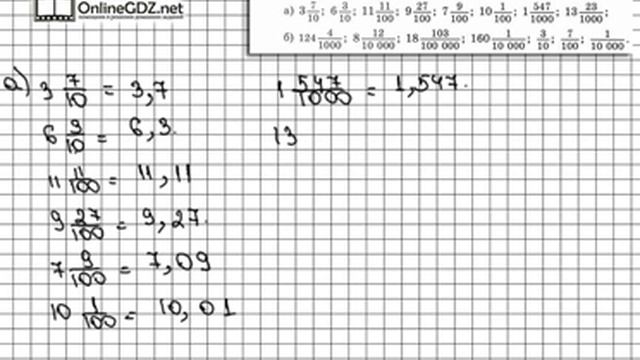 OnlineGDZ.net
а) 3 7/10; 6 3/10; 11 11/100; 9 27/100; 7 9/100; 10 1/100; 1 547/1000; 13 23/1000;
б) 124 4/1000; 8 12/10 000; 18 103/100 000; 160 1/10 000; 3/10; 7/100; 1/10 000.
а) 3 7/10 = 3,7
6 3/10 = 6,3.
11 11/100 = 11,11
9 27/100 = 9,27.
7 9/100 = 7,09
10 1/100 = 10,01
1 547/1000 = 1,547.
13